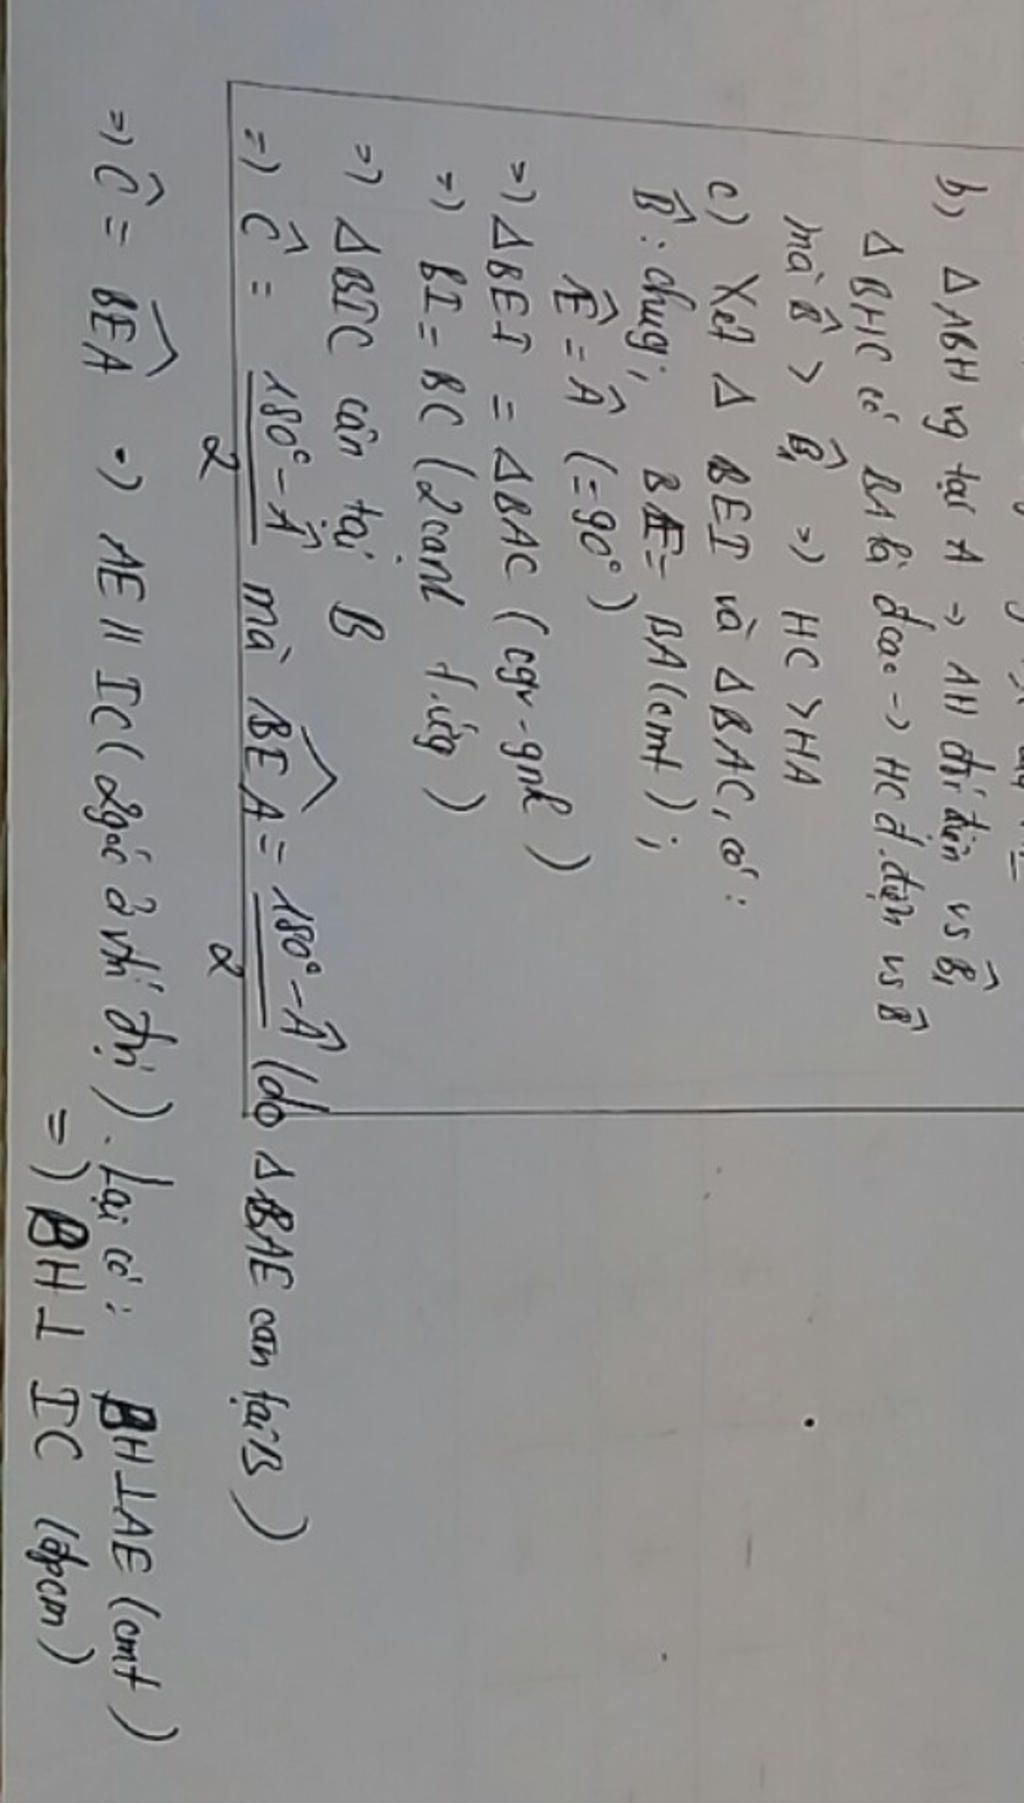 b, Δ ABH vg tại A → AH đối diện vs B̂₁
Δ BHC có BA là đcao → HC đ.diện vs B̂
mà B̂ > B̂₁ => HC > HA
c) Xét Δ BEI và Δ BAC, có:
B̂: chug; BE = BA (cmt);
Ê = Â (= 90°)
=> Δ BEI = Δ BAC (cgv - gnk)
=> BI = BC (2 cạnh t.ứg)
=> Δ BIC cân tại B
=> Ĉ = (180° - Â)/2 mà BEÂ = (180° - Â)/2 (do Δ BAE cân tại B)
=> Ĉ = BEÂ => AE // IC (2 góc ở vtrí đvị). Lại có: BH ⊥ AE (cmt)
=> BH ⊥ IC (đpcm)